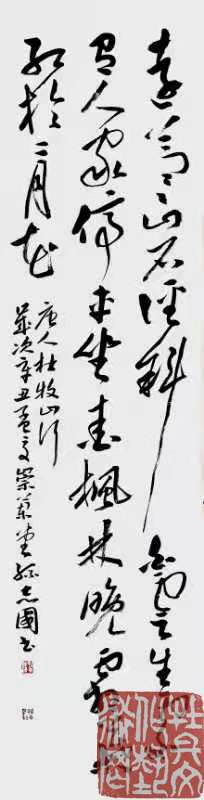 遠上寒山石徑斜白雲生
有人家停車坐愛楓林晚霜
紅於二月花
唐人杜牧山行
歲次辛丑孟夏崇蘭堂志國書